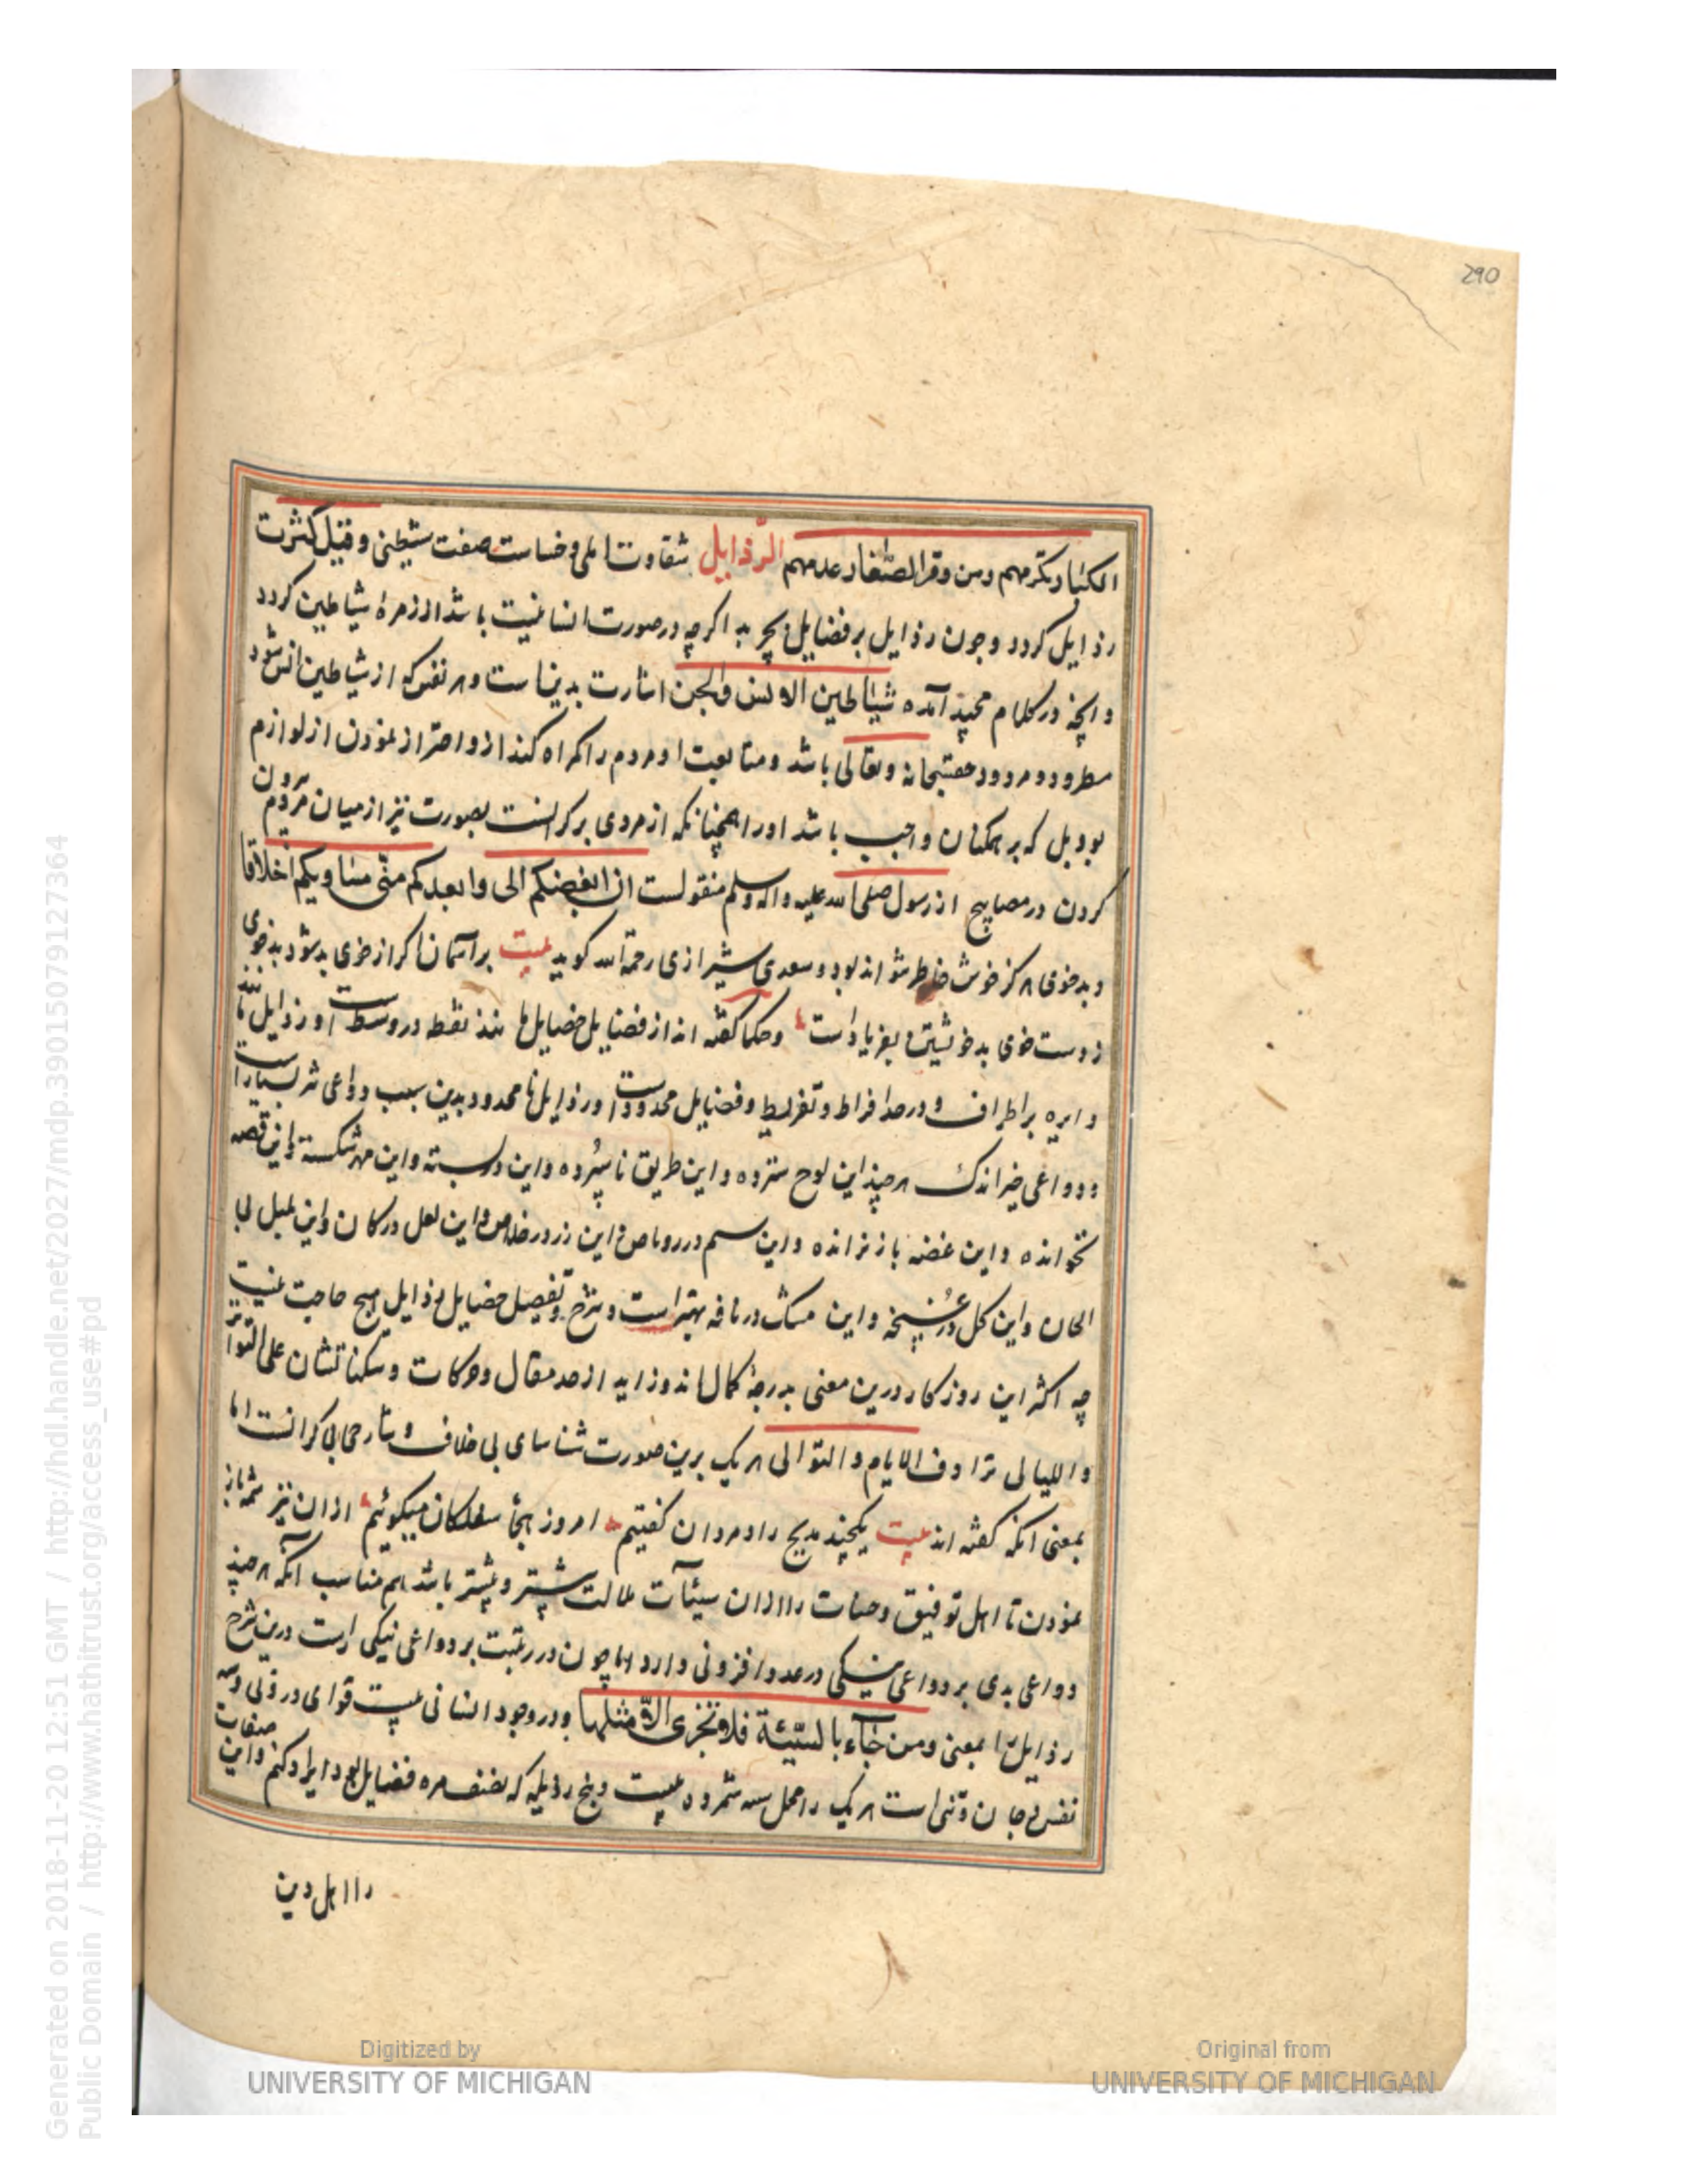 290
الکبار بکرمهم ومن وقر الصغار عدمهم الرذایل شقاوت املی وخساست صفت شیطنی وقتیل کثرت
رذایل کردد وجون رذایل برفضایل بچربد اکرچه درصورت انسانیت باشد اززمرهٔ شیاطین کردد
وانچه درکلام مجید آمده شیاطین الانس والجن اشارت بدینا ست وهر نفس که ازشیاطین انس شود
مطرود ومردود حقسبحانه وتعالی باشد ومتابعت او مردم را کمراه کند ازو احتراز نمودن ازلوازم
بود بل که بر همکنان واجب باشد اورا همچنانکه ازمردی برکرانست بصورت نیز ازمیان مردم بیرون
کردن درمصابیح ازرسول صلی الله علیه واله وسلم منقولست ان ابغضکم الی وابعدکم منی مساویکم اخلاقا
وبدخوی هرکز خوش خاطر نتواند بود وسعدی شیرازی رحمة الله کوید بیت برآسمان اکر ازخوی بدشود بدخوی
زدست خوی بد خویشتن بفریاد است وحکما کفته اند ازفضایل فضایل ها نند نقط در وسط است ورذایل مانند
دایره براطراف ودرحد افراط وتفریط وفضایل محدود است ورذایل نا محدود بدین سبب دواعی شر بسیار است
ودواعی خیر اندک هرچند این لوح سترده واین طریق نا سپرده واین در بسته واین مهر شکسته واین قصه
نخوانده واین غصه باز نرانده واین سم در رماص واین زر درخلاص واین لعل درکان واین بلبل بی
الحان واین کل درغنچه واین مشک درنافه بهتر است وشرح وتفصیل خصایل رذایل هیچ حاجت نیست
چه اکثر این روزکار درین معنی بدرجهٔ کمال اند وزاید ازحد مقال وحرکات وسکناتشان علی التواتر
واللیالی ترادف الایام والتوالی هریک برین صورت شناسای بی خلاف وشارحی بی کرانست اما
بمعنی آنکه کفته اند بیت یکچند مدیح رادمردان کفتیم امروز هجا سفلکان میکوئیم ازان نیز شمه باز
نمودن تا اهل توفیق وحسات را ازان سیئآت ملالت بیشتر وبیشتر باشد هم مناسب آنکه هرچند
دواعی بدی بردواعی نیکی درعدد افزونی دارد اما چون دررتبت بردواعی نیکی است درین شرح
رذایل را بمعنی ومن جآء بالسیئة فلا تجزی الا مثلها ودروجود انسانی بیست قوای درذلی وسه
نفس وجان وتنی است هریک را محل سه شمرده بیست وپنج رذیله که نصف مره فضایل بود ایراد کنم واین صفات
را اهل دین
Generated on 2018-11-20 12:51 GMT / http://hdl.handle.net/2027/mdp.39015079127364
Public Domain / http://www.hathitrust.org/access_use#pd
Digitized by
UNIVERSITY OF MICHIGAN
Original from
UNIVERSITY OF MICHIGAN